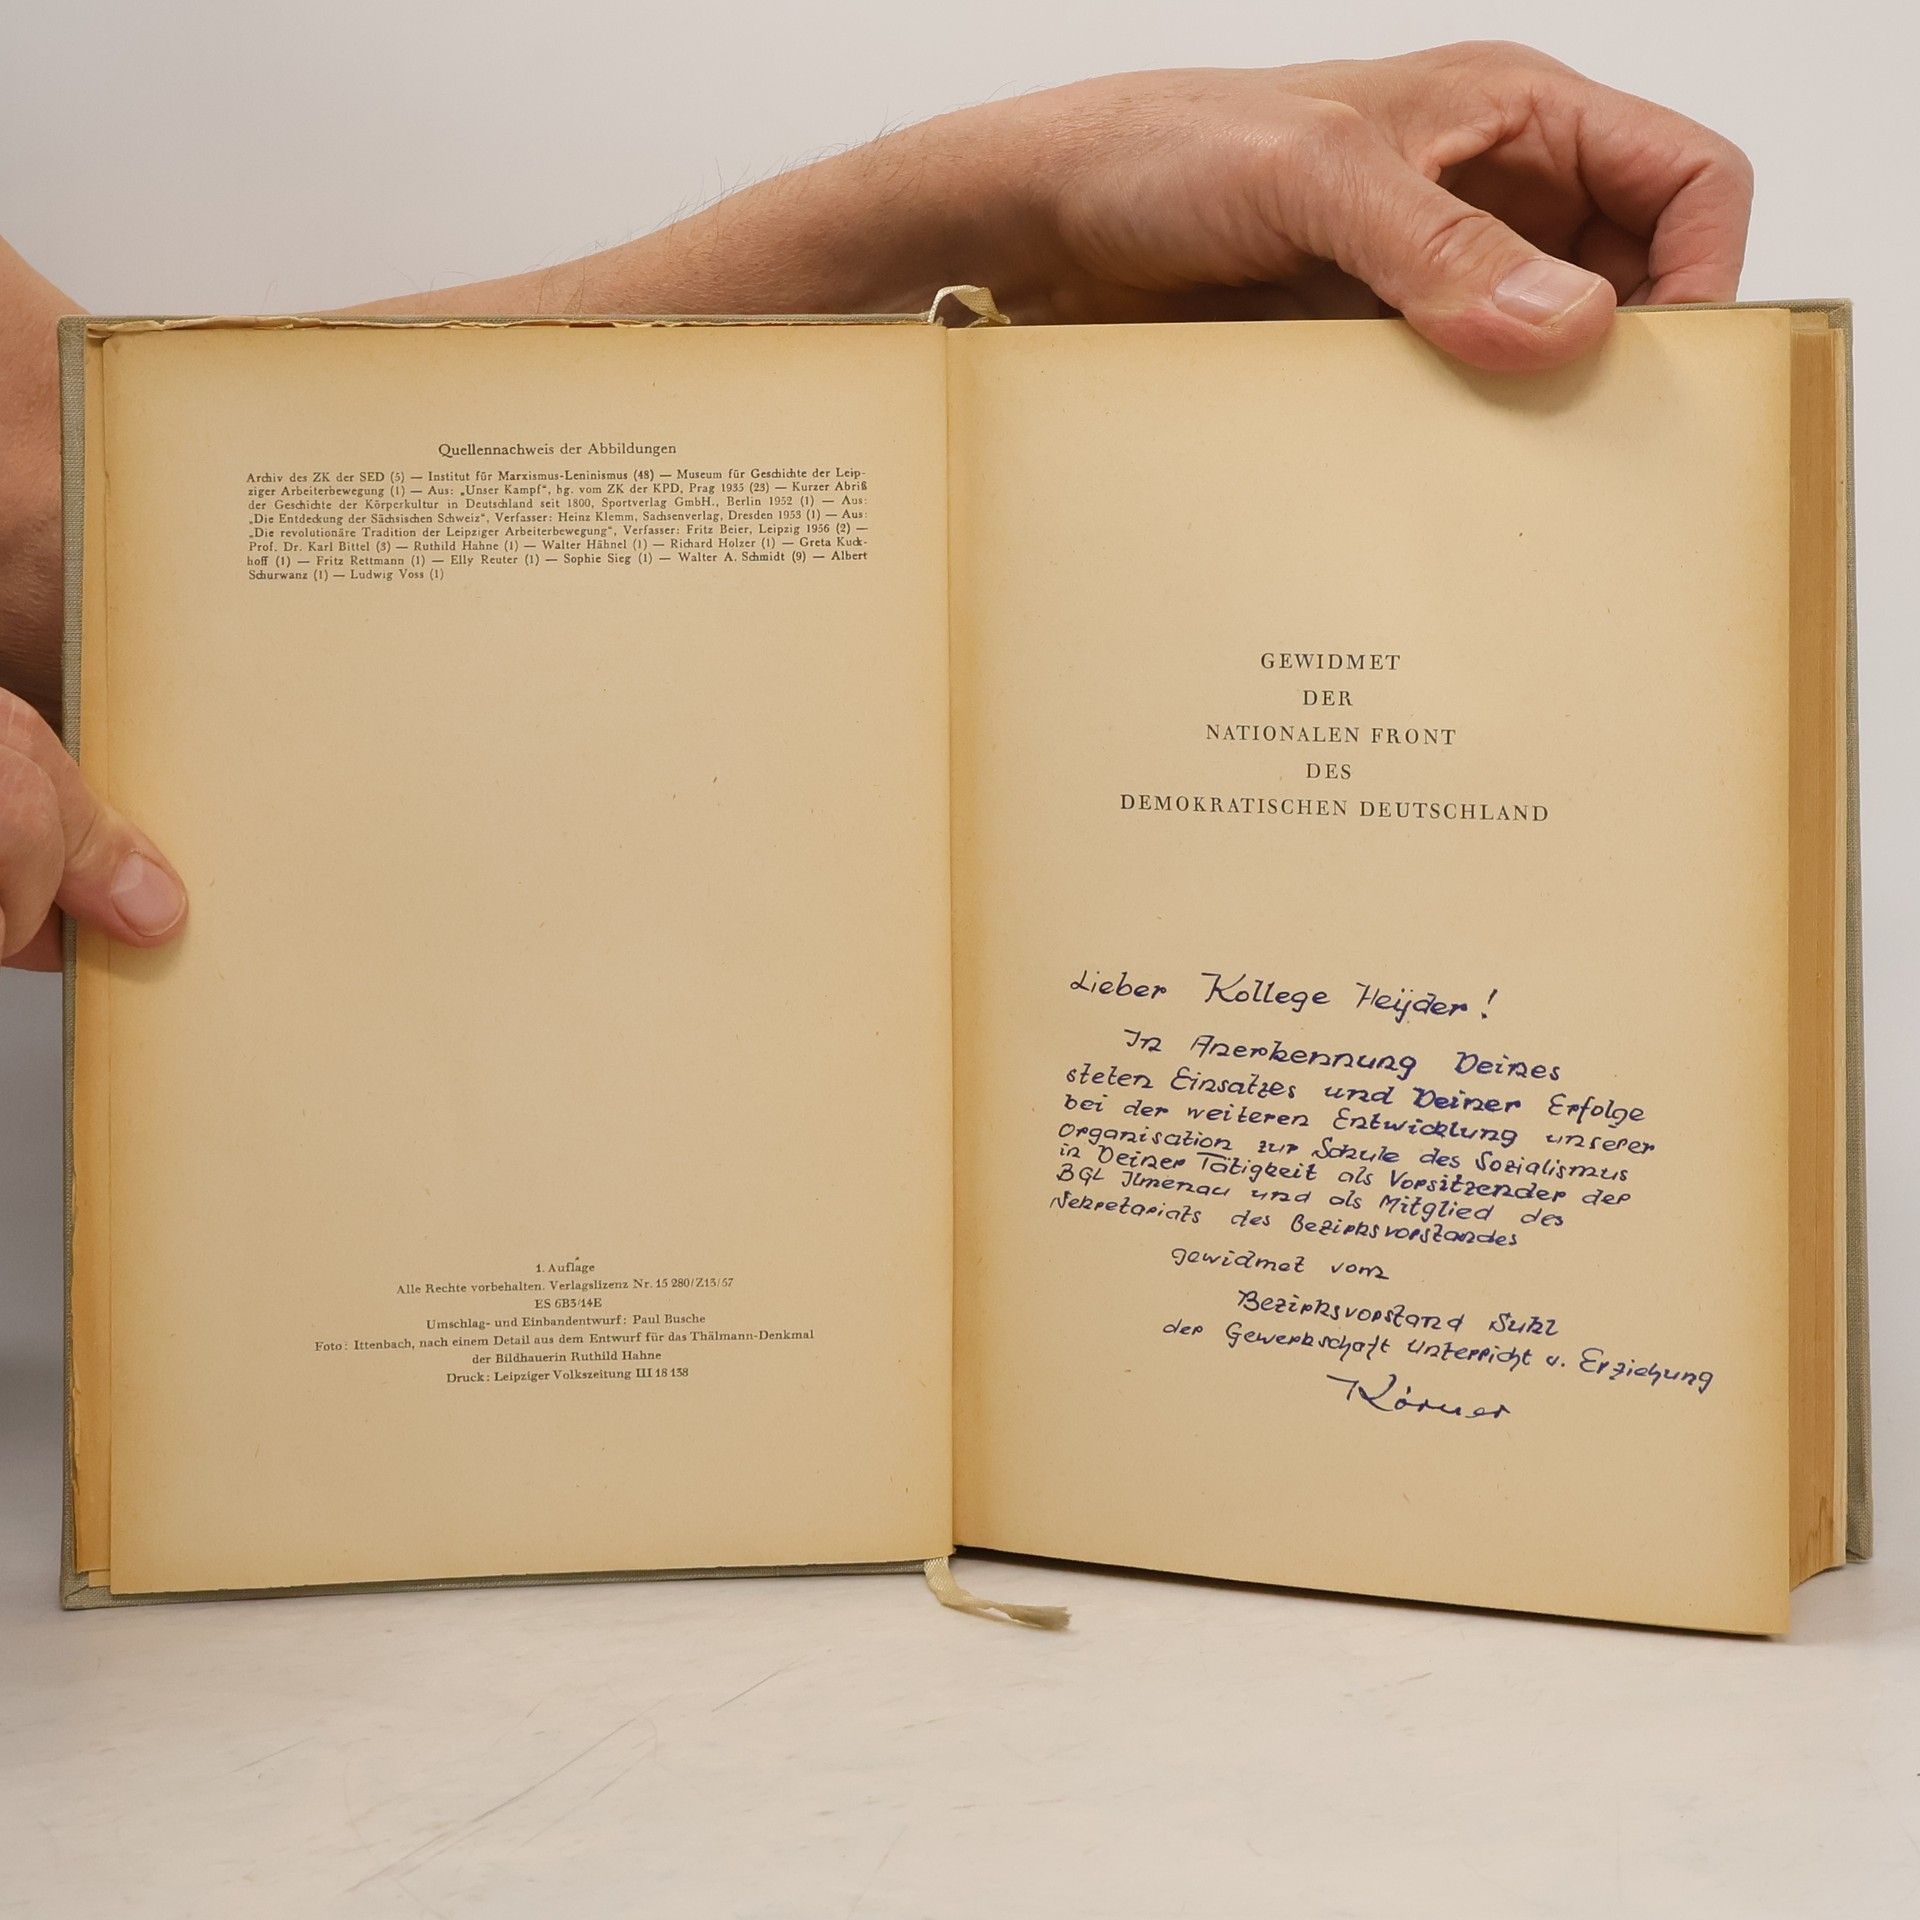 Quellennachweis der Abbildungen
Archiv des ZK der SED (5) — Institut für Marxismus-Leninismus (48) — Museum für Geschichte der Leip-
ziger Arbeiterbewegung (1) — Aus: „Unser Kampf“, hg. vom ZK der KPD, Prag 1935 (23) — Kurzer Abriß
der Geschichte der Körperkultur in Deutschland seit 1800, Sportverlag GmbH., Berlin 1952 (1) — Aus:
„Die Entdeckung der Sächsischen Schweiz“, Verfasser: Heinz Klemm, Sachsenverlag, Dresden 1953 (1) — Aus:
„Die revolutionäre Tradition der Leipziger Arbeiterbewegung“, Verfasser: Fritz Beier, Leipzig 1956 (2) —
Prof. Dr. Karl Bittel (3) — Ruthild Hahne (1) — Walter Hähnel (1) — Richard Holzer (1) — Greta Kuck-
hoff (1) — Fritz Rettmann (1) — Elly Reuter (1) — Sophie Sieg (1) — Walter A. Schmidt (9) — Albert
Schurwanz (1) — Ludwig Voss (1)
1. Auflage
Alle Rechte vorbehalten. Verlagslizenz Nr. 15 280/Z13/57
ES 6B3/14E
Umschlag- und Einbandentwurf: Paul Busche
Foto: Ittenbach, nach einem Detail aus dem Entwurf für das Thälmann-Denkmal
der Bildhauerin Ruthild Hahne
Druck: Leipziger Volkszeitung III 18 138
GEWIDMET
DER
NATIONALEN FRONT
DES
DEMOKRATISCHEN DEUTSCHLAND
Lieber Kollege Heÿder!
In Anerkennung Deines
steten Einsatzes und Deiner Erfolge
bei der weiteren Entwicklung unserer
Organisation zur Schule des Sozialismus
in Deiner Tätigkeit als Vorsitzender der
BGL Ilmenau und als Mitglied des
Sekretariats des Bezirksvorstandes
gewidmet vom
Bezirksvorstand Suhl
der Gewerkschaft Unterricht u. Erziehung
Körner